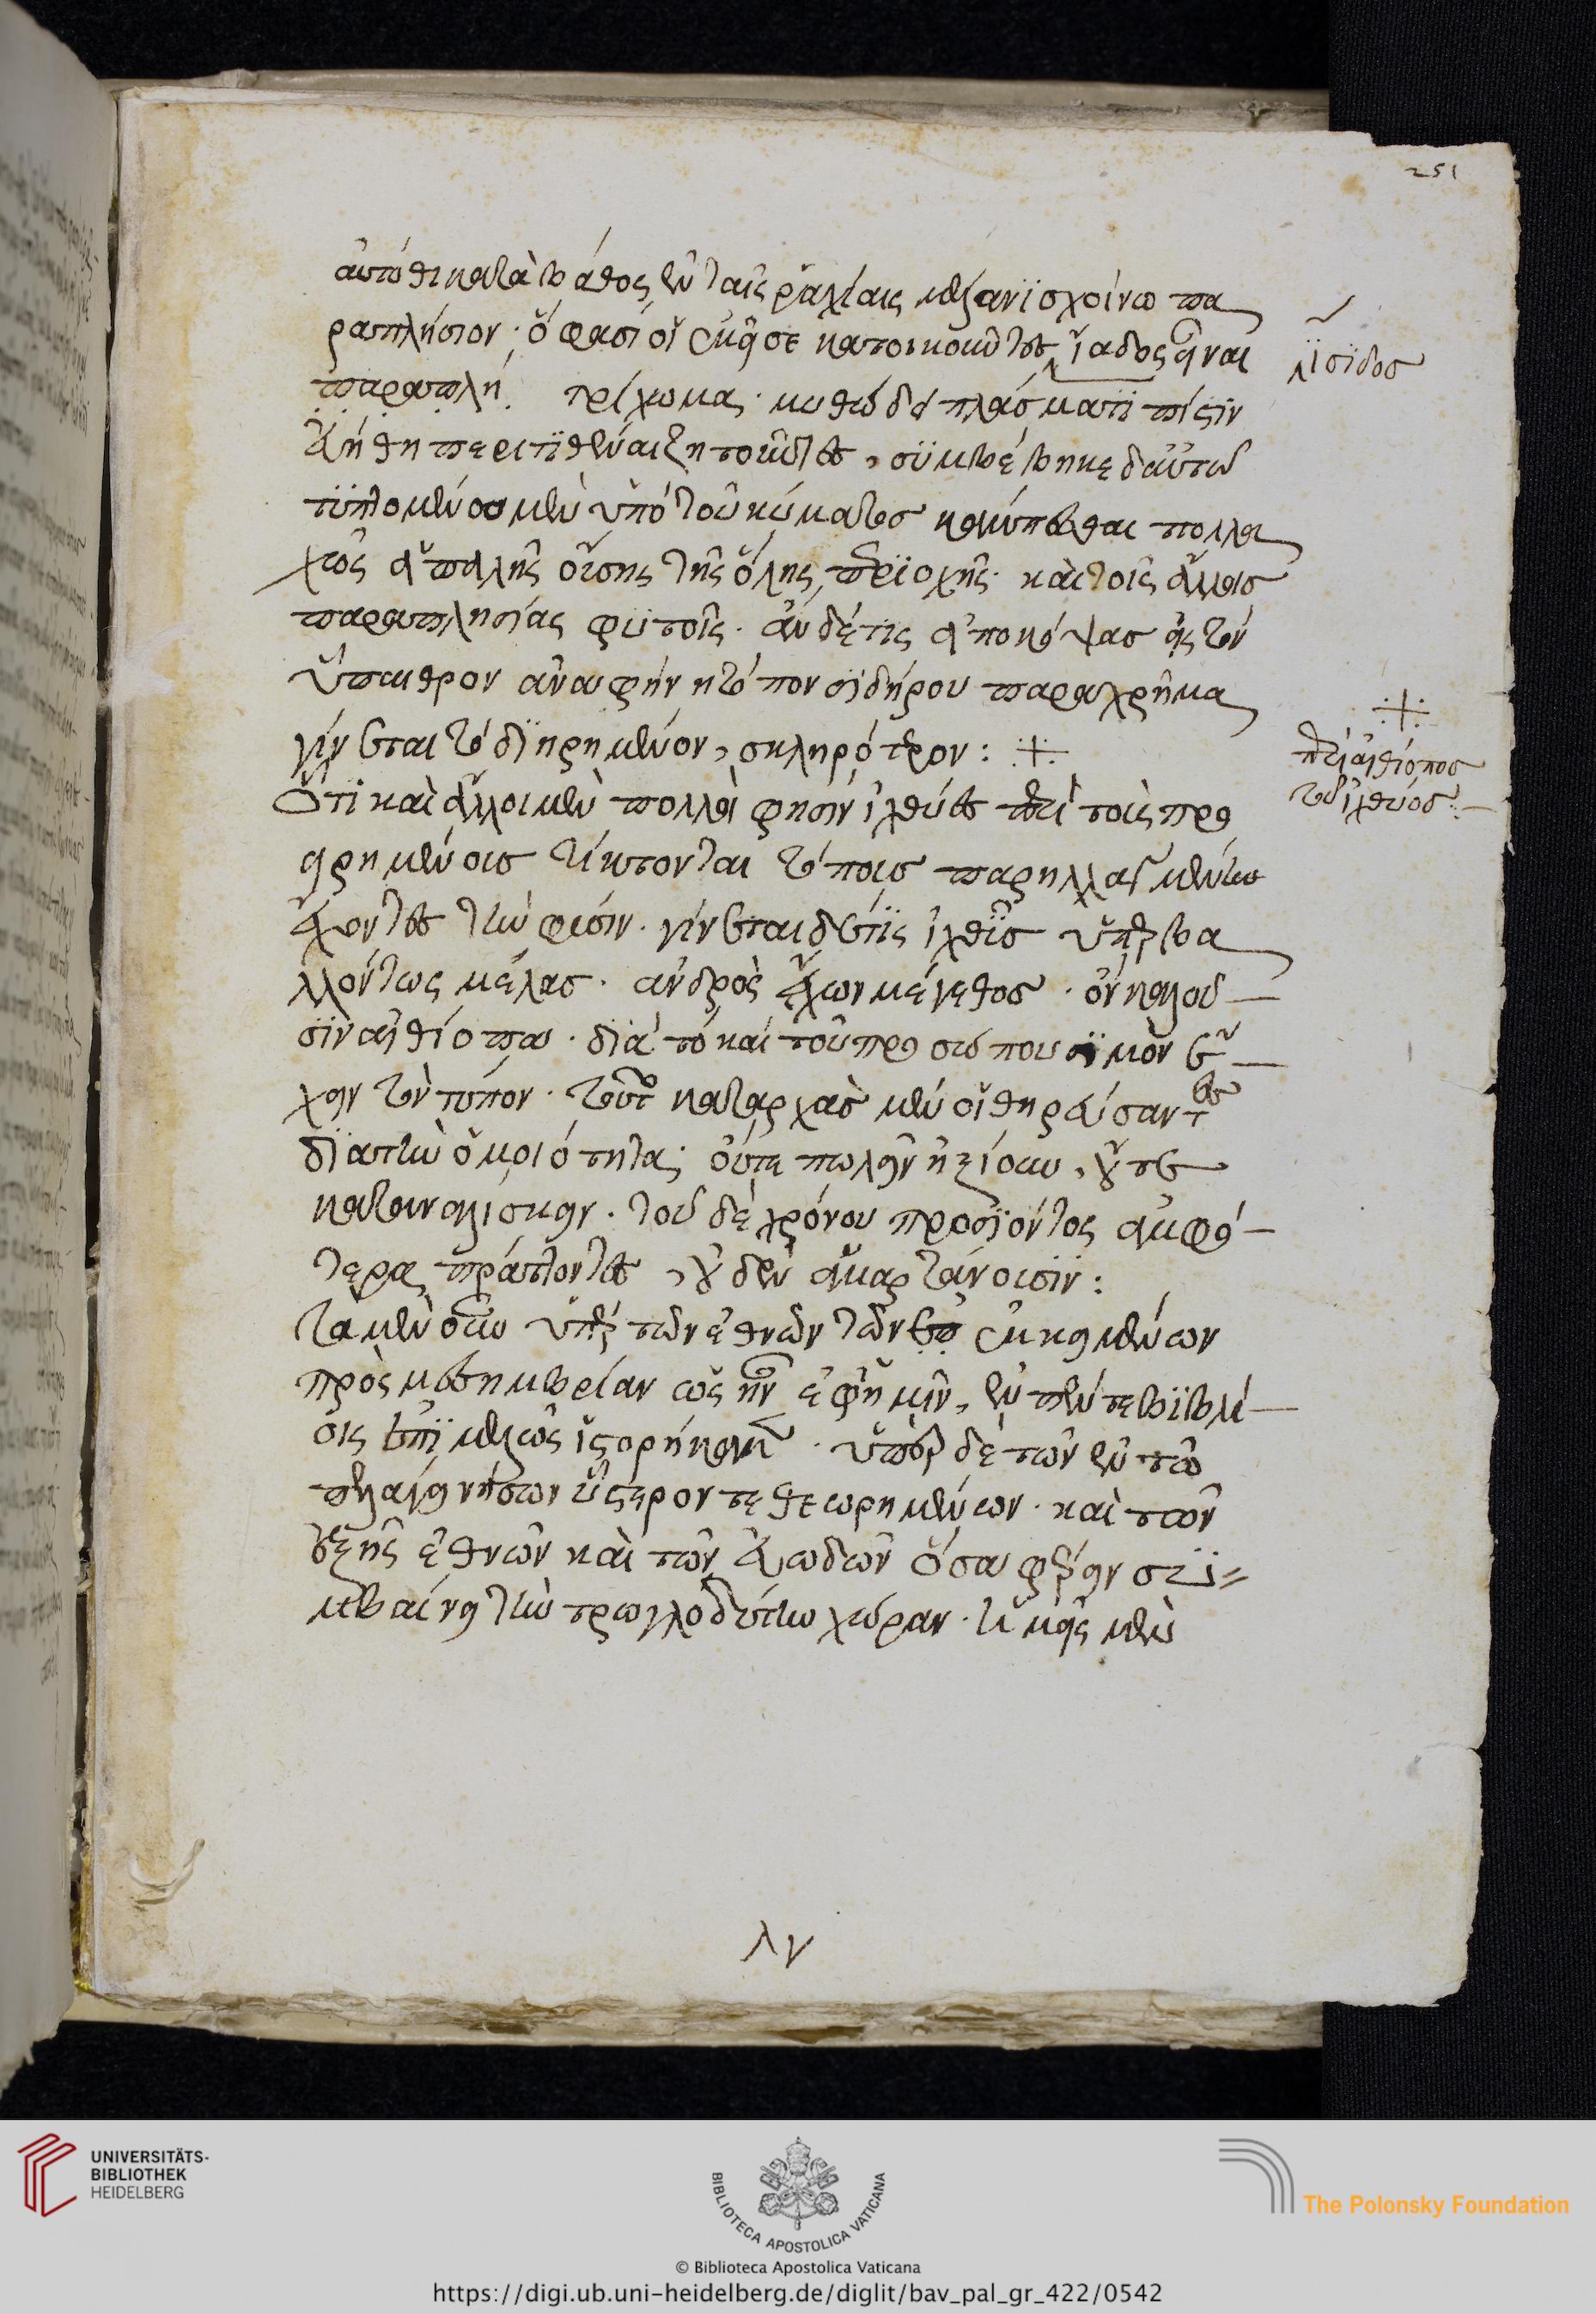 251
αὐτόθι κατὰ βάθος ἐν ταῖς ῥαχίαις μέλανϊ σχοίνω πα
ραπλήσιον· ὅ φασὶ οἱ ἐκεῖσε κατοικοῦντες ἴαδος εἶναι
παραπλή τρίχωμα· μυθώδει πλάσματι πίστιν
εὐήθη περιτιθέναι ζητοῦντες, συμβέβηκε δ' αὐτῶ
τϋπτομένου μὲν ὑπὸ τοῦ κύματος κάμπτεσθαι πολλα
χῶς ἁπαλῆς οὔσης τῆς ὅλης περϊοχῆς· καὶ τοῖς ἄλλοις
παραπλησίας φυτοῖς· ἂν δέ τις ἀποκόψας εἰς τὸν
ὕπαιθρον ἀναφήνη τόπον σιδήρου παραχρῆμα
γίνεται τὸ διηρημένον, σκληρότερον: ⁜
Ὅτι καὶ ἄλλοι μὲν πολλοὶ φησὶν ἰχθύες περὶ τοὺς προ
ειρημένοις τίκτονται τόποις παρηλλαγμένως
ἔχοντες τὴν φύσιν· γίνεται δέ τϊς ἰχθῢς ὑπερβα
λλόντως μέλας· ἀνδρὸς ἔχων μέγεθος· ὃν καλοῦ
σϊν αἰθίοπα· δϊὰ τὸ καὶ τοῦ προσώπου σϊμὸν ἔ
χειν τὸν τύπον· τοῦτον καταρχὰς μὲν οἱ θηρεύσαντες
δϊὰ τὴν ὁμοιότητα· οὔτε πωλεῖν ἠξίουν, οὔτε
καταναλίσκειν· τοῦ δὲ χρόνου προσϊόντος ἀμφό
τερα πράττοντες, οὐδὲν ἁμαρτάνουσιν:
Τὰ μὲν οὖν ὑπὲρ τῶν ἐθνῶν τῶν ἐκκειμένων
πρὸς μεσημβρίαν ὡς ἦν ἐφ' ἡμῖν, ἐν πέντε βϊβλί
οις ἐπϊμελῶς ἱστορήκαμεν· ὑπὲρ δὲ τῶν ἐν τῶ
πελάγει νήσων ὕστερον τεθεωρημένων· καὶ τῶν
ἑξῆς ἐθνῶν καὶ τῶν εὐωδῶν ὅσα φέρειν συ
μβαίνει τὴν τρωγλοδύτιν χώραν· ἡμεῖς μὲν
λϊσϊδος
⁜
περὶ αἰθίοπος
τοῦ ἰχθύος:
λγ
UNIVERSITÄTS-
BIBLIOTHEK
HEIDELBERG
BIBLIOTECA APOSTOLICA VATICANA
The Polonsky Foundation
© Biblioteca Apostolica Vaticana
https://digi.ub.uni-heidelberg.de/diglit/bav_pal_gr_422/0542